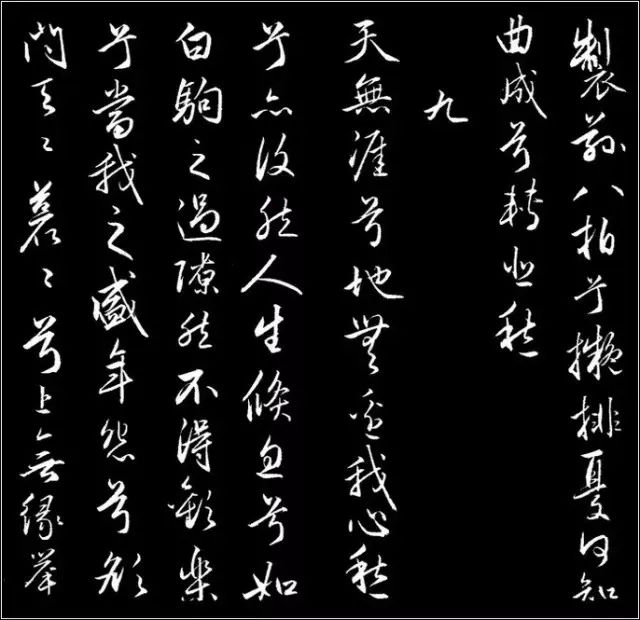 製茲八拍兮擬排憂何知
曲成兮轉悲愁
九
天無涯兮地無邊我心愁
兮亦復然人生倏忽兮如
白駒之過隙然不得歡樂
兮當我之盛年怨兮欲
問天〻蒼〻兮上無緣舉